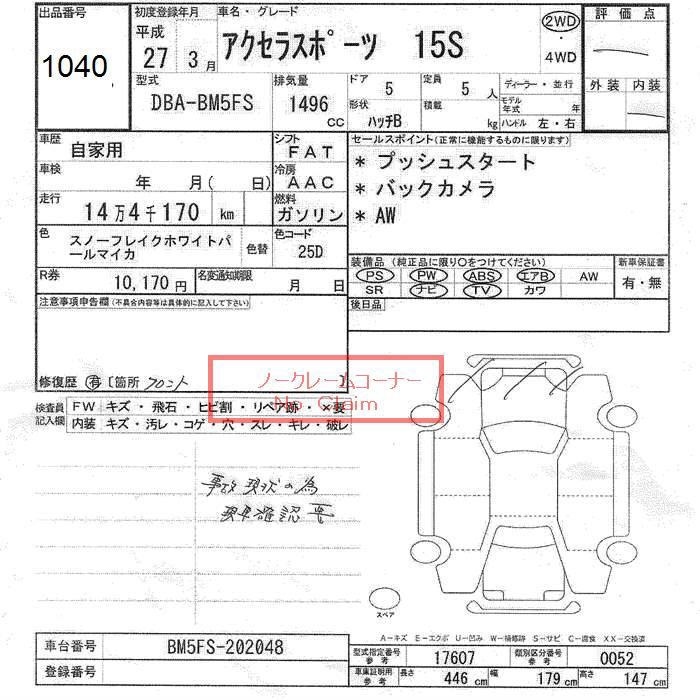 出品番号
1040
初度登録年月
平成
27 3月
車名・グレード
アクセラスポーツ 15S
2WD
・
4WD
評価点
外装 内装
型式
DBA-BM5FS
排気量
1496
CC
ドア
5
形状
ハッチB
定員
5人
積載
kg
ディーラー・並行
モデル年式 年
ハンドル 左・右
車歴
自家用
シフト
FAT
車検
年 月( 日)
冷房
AAC
走行
14万4千170 km
燃料
ガソリン
色
スノーフレイクホワイトパールマイカ
色替
色コード
25D
R券
10,170円
名変通知期限
月 日
セールスポイント(正常に機能するものに限ります)
* プッシュスタート
* バックカメラ
* AW
装備品(純正品に限り○をつけてください)
PS PW ABS エアB AW
SR ナビ TV カワ
新車保証書
有・無
後日品
注意事項申告欄(不具合内容等は具体的に記入して下さい)
修復歴 有〔箇所 フロント 〕
ノークレームコーナー
No Claim
検査員
記入欄
FW キズ・飛石・ヒビ割・リペア跡・×要
内装 キズ・汚レ・コゲ・穴・スレ・キレ・破レ
事故現状の為
現車確認要
スペア
A−キズ E−エクボ U−凹み W−補修跡 S−サビ C−腐食 XX−交換済
車台番号
BM5FS-202048
登録番号
型式指定番号
参考
17607
類別区分番号
参考
0052
車庫証明用
参考
長さ
446 cm
幅
179 cm
高さ
147 cm